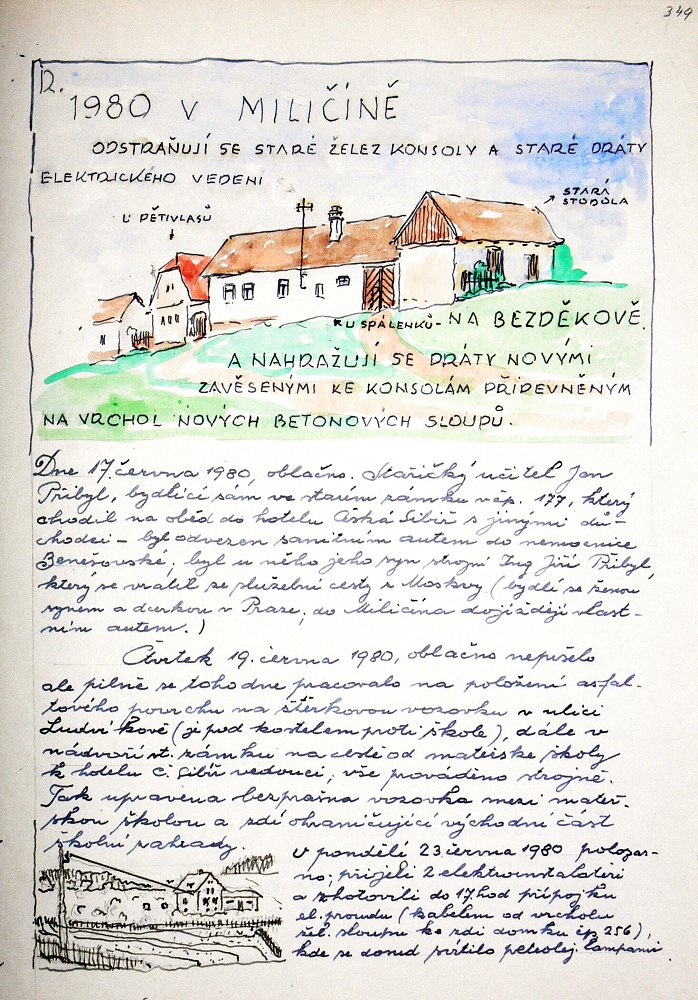 349
R.
1980 V MILIČÍNĚ
ODSTRAŇUJÍ SE STARÉ ŽELEZ KONSOLY A STARÉ DRÁTY
ELEKTRICKÉHO VEDENI
STARÁ
STODOLA
U PĚTIVLASŮ
U SPÁLENKŮ - NA BEZDĚKOVĚ.
A NAHRAŽUJÍ SE DRÁTY NOVÝMI
ZAVĚSENÝMI KE KONSOLÁM PŘIPEVNĚNÝM
NA VRCHOL NOVÝCH BETONOVÝCH SLOUPŮ.
Dne 17. června 1980, oblačno. Stařičký učitel Jan
Přibyl, bydlící sám ve starém zámku v čp. 177, který
chodil na oběd do hotelu Česká Sibiř s jinými dů-
chodci - byl odvezen sanitním autem do nemocnice
Benešovské; byl u něho jeho syn strojní Ing Jiří Přibyl,
který se vrátil ze služební cesty z Moskvy. (bydlí se ženou
synem a dcerkou v Praze; do Miličína dojíždějí vlast-
ním autem.)
Čtvrtek 19. června 1980, oblačno nepršelo
ale pilně se toho dne pracovalo na položení asfal-
tového povrchu na štěrkovou vozovku v ulici
Ludvíkově (je pod kostelem proti škole), dále v
nádvoří st. zámku na cestě od mateřské školy
k hotelu Č. Sibiř vedoucí; vše prováděno strojně.
Tak upravena bezprašná vozovka mezi mateř.
skou školou a zdí ohraničující východní část
školní zahrady.
V pondělí 23 června 1980 polojas-
no; přijeli 2 elektroinstalatéri
a zhotovili do 17. hod přípojku
el. proudu (kabelem od vrcholu
žel. sloupu ke zdi domku čp 256),
kde se dosud svítilo petrolej. lampami.